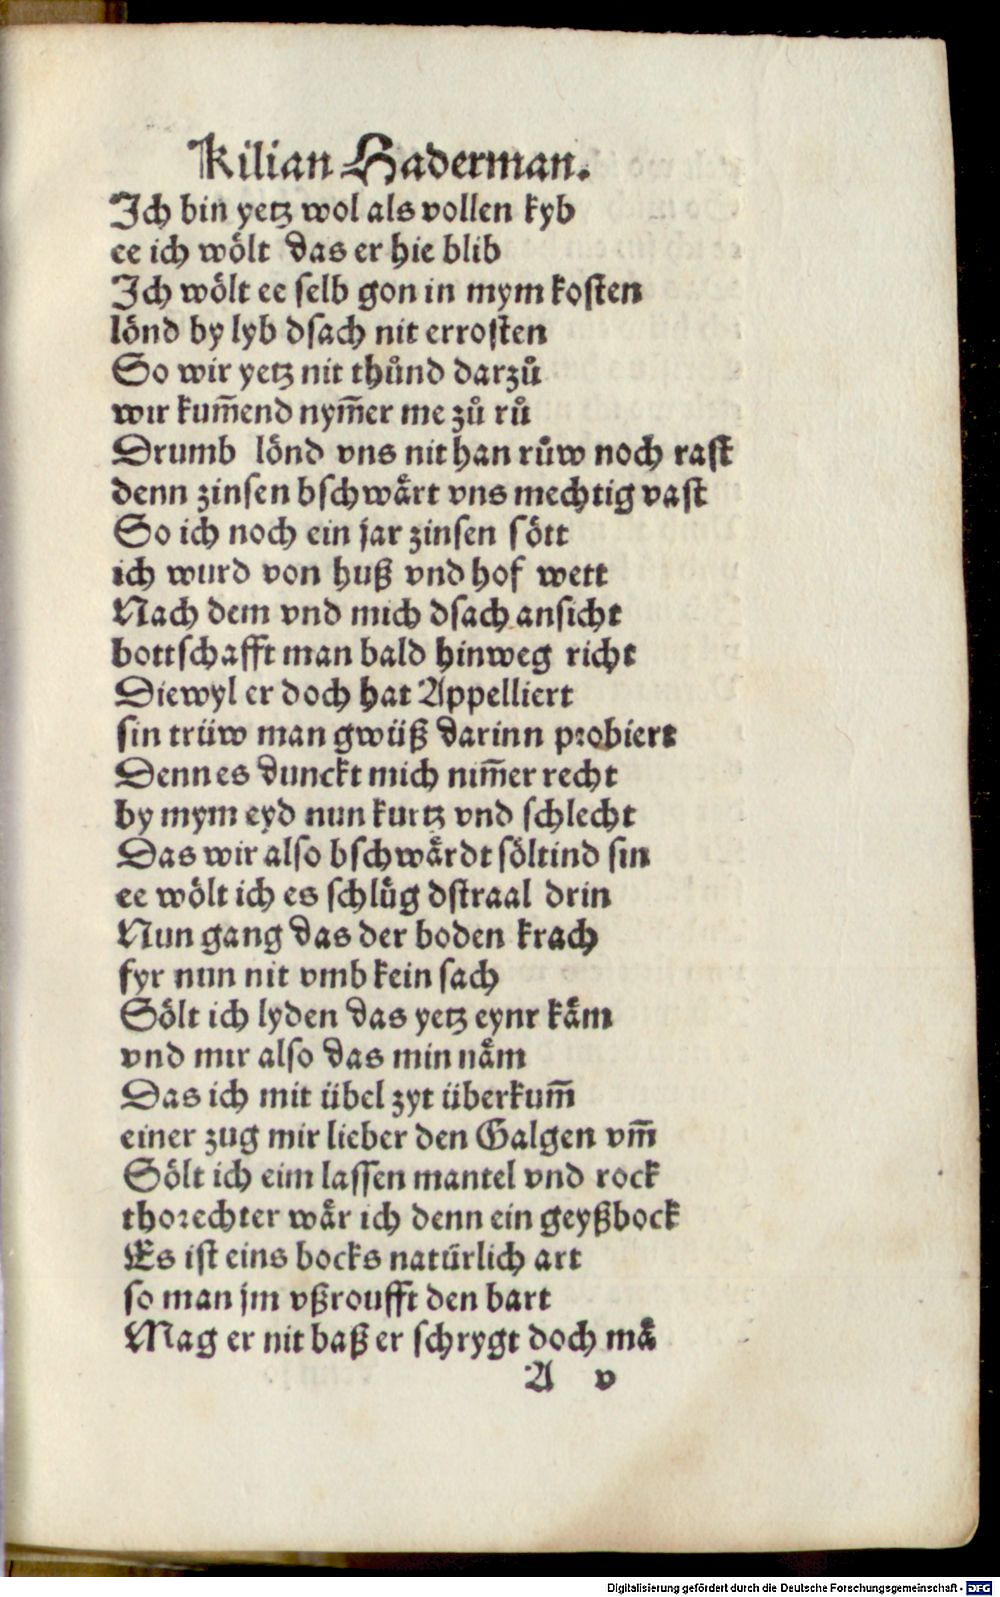 Kilian Haderman.
Ich bin yetz wol als vollen kyb
ee ich wölt das er hie blib
Ich wölt ee selb gon in mym kosten
lönd by lyb dsach nit errosten
So wir yetz nit thůnd darzů
wir kum̄end nym̄er me zů rů
Drumb lönd vns nit han růw noch rast
denn zinsen bschwärt vns mechtig vast
So ich noch ein jar zinsen sött
ich wurd von huß vnd hof wett
Nach dem vnd mich dsach ansicht
bottschafft man bald hinweg richt
Diewyl er doch hat Appelliert
sin trüw man gwüß darinn probiert
Denn es dunckt mich nim̄er recht
by mym eyd nun kurtz vnd schlecht
Das wir also bschwärdt söltind sin
ee wölt ich es schlüg dstraal drin
Nun gang das der boden krach
fyr nun nit vmb kein sach
Sölt ich lyden das yetz eynr käm
vnd mir also das min näm
Das ich mit übel zyt überkum̄
einer zug mir lieber den Galgen vm̄
Sölt ich eim lassen mantel vnd rock
thorechter wär ich denn ein geyßbock
Es ist eins bocks natürlich art
so man jm vßroufft den bart
Mag er nit baß er schrygt doch mä
A v
Digitalisierung gefördert durch die Deutsche Forschungsgemeinschaft - DFG